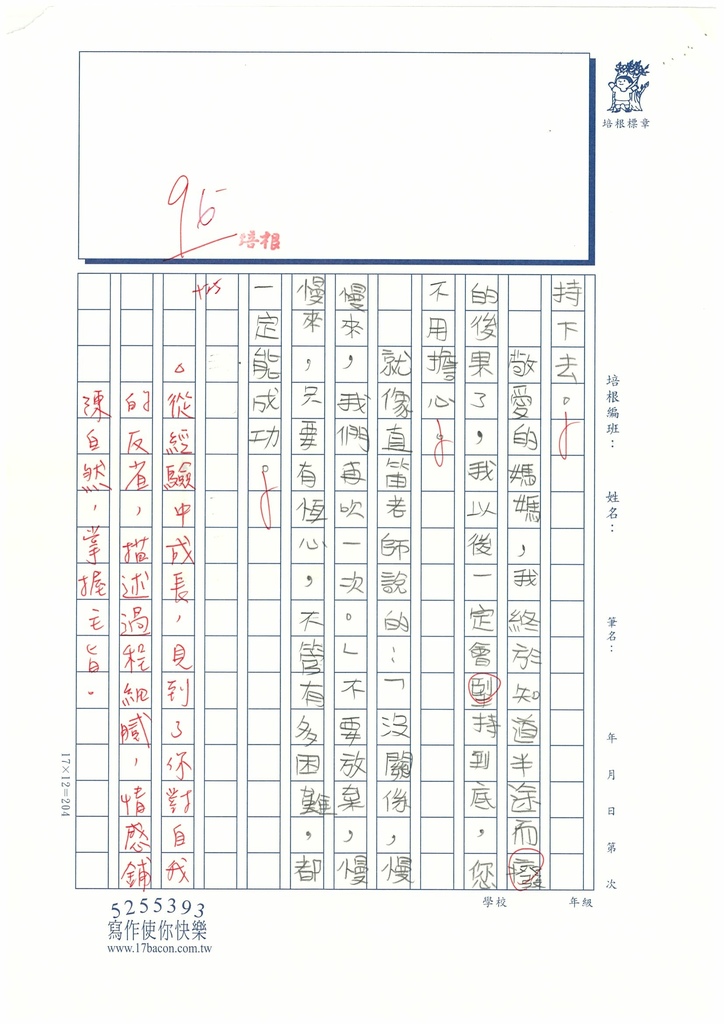 培根標章
95
培根
培根編班：
姓名：
筆名：
年 月 日 第 次
學校
年級
持下去。
敬愛的媽媽，我終於知道半途而癈
的後果了，我以後一定會剄持到底，您
不用擔心。
就像直笛老師說的：「沒關係，慢
慢來，我們再吹一次。」不要放棄，慢
慢來，只要有恆心，不管有多困難，都
一定能成功。
。從經驗中成長，見到了你對自我
的反省，描述過程細膩，情感鋪
陳自然，掌握主旨。
17×12=204
5255393
寫作使你快樂
www.17bacon.com.tw